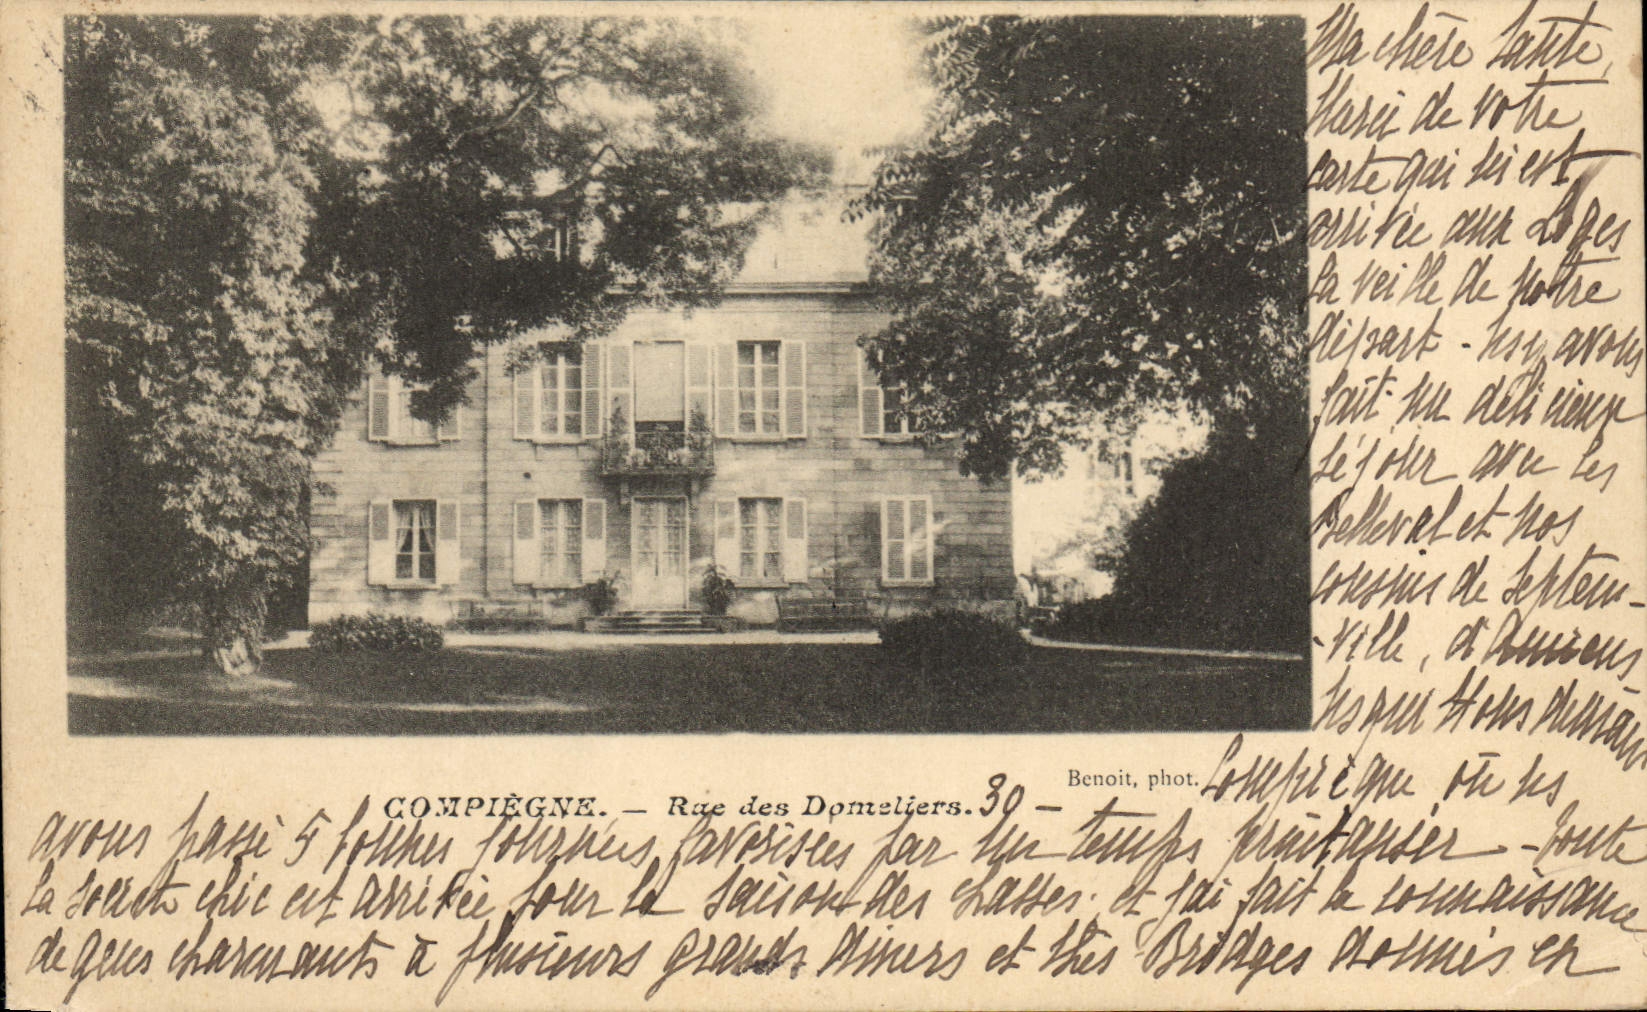 Ma chère Tante,
Merci de votre
carte qui ns est
arrivée aux Loges
la veille de notre
départ - ns y avons
fait un délicieux
séjour avec les
Belleval et nos
cousins de Septeu-
-ville, d'Amiens
Compiègne où ns
Benoit, phot.
COMPIÈGNE. — Rue des Domeliers. 30 —
avons passé 5 bonnes journées favorisées par un temps printanier - Toute
la société chic est arrivée pour la saison des chasses; et j'ai fait la connaissance
de gens charmants à plusieurs grands dîners et thés Bridges donnés en